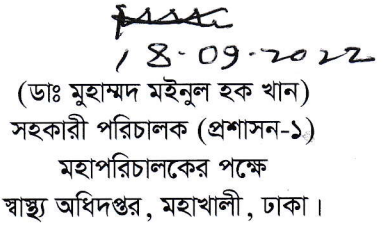 18-09-2022
(ডাঃ মুহাম্মদ মইনুল হক খান)
সহকারী পরিচালক (প্রশাসন-১)
মহাপরিচালকের পক্ষে
স্বাস্থ্য অধিদপ্তর, মহাখালী, ঢাকা।